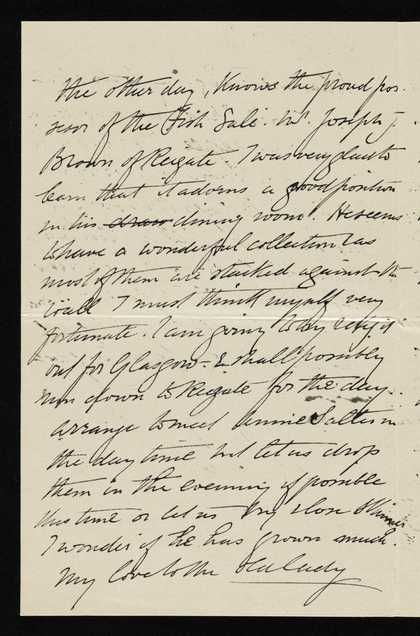 the other day, Knows the proud pos-
sessor of the Fish Sale. Mr. Joseph J
Brown of Reigate. I was very glad to
learn that it adorns a good position
in his draw dining room. He seems
to have a wonderful collection & as
most of them are stacked against the
wall I must think myself very
fortunate. I am going to try & fix it
out for Glasgow - & shall possibly
run down to Reigate for the day.
arrange to meet Annie Salter in
the day time but let us drop
them in the evening if possible
this time or let us
I wonder if he has grown much.
My love to the old lady